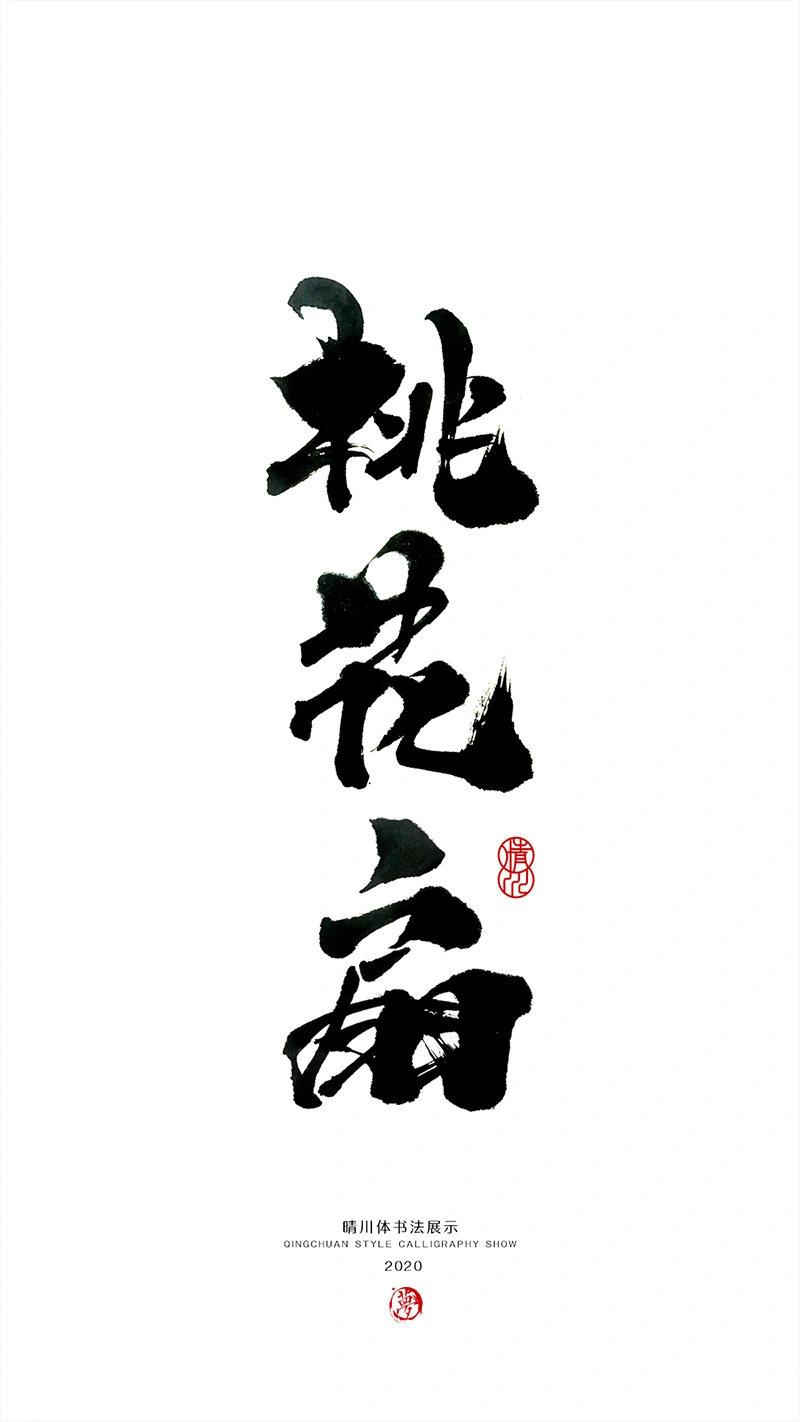 桃花扇
晴川
晴川体书法展示
QINGCHUAN STYLE CALLIGRAPHY SHOW
2020
夢